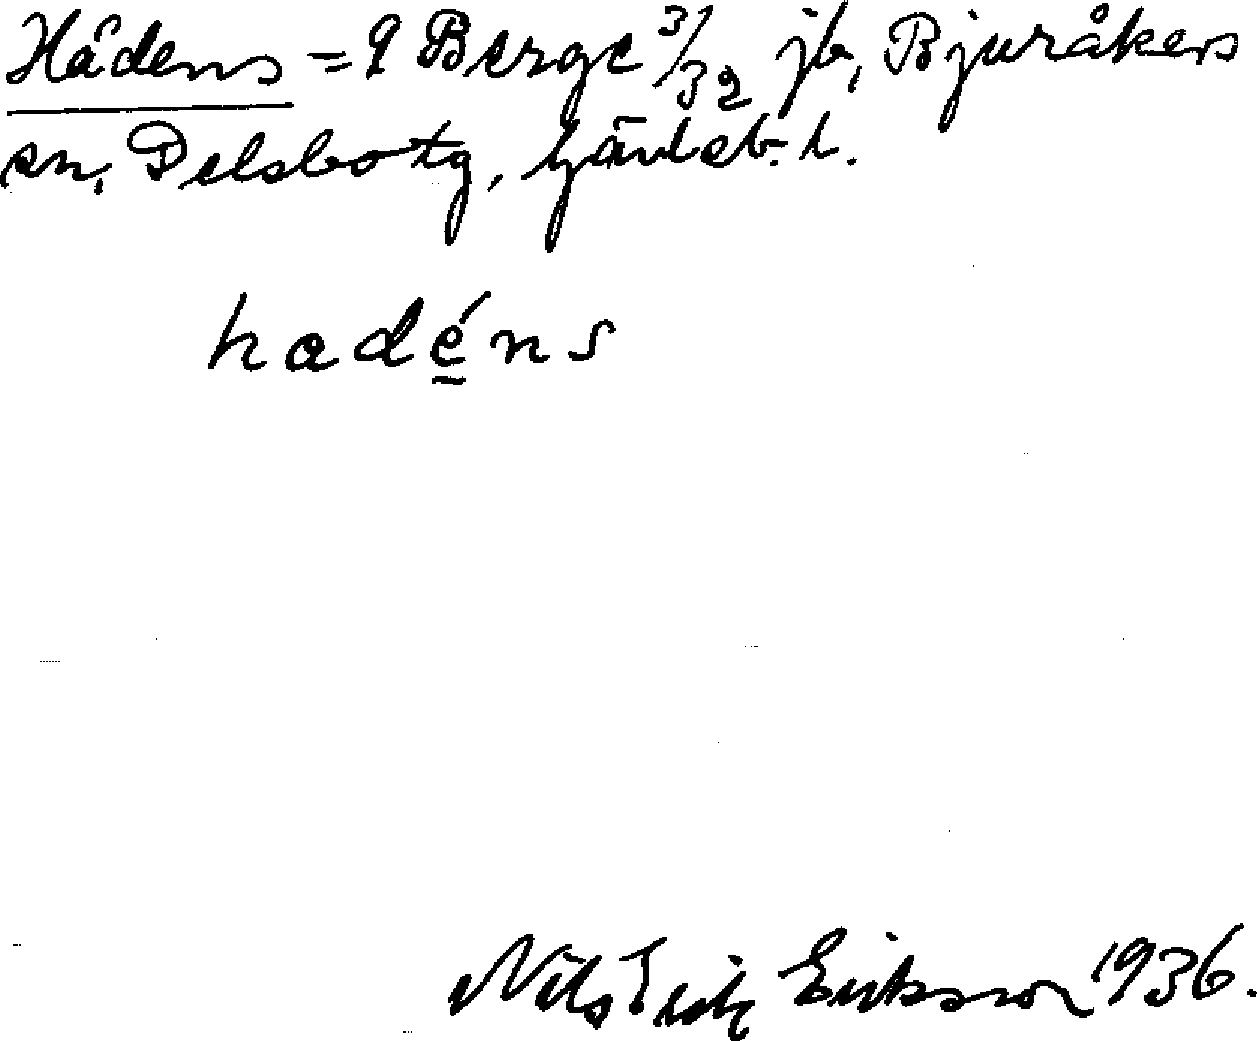 Hådens = 9 Berge 3/32 jb, Bjuråkers
sn, Delsbo tg, Gävleb. l.
hadéns
Nils Erik Eriksson 1936.